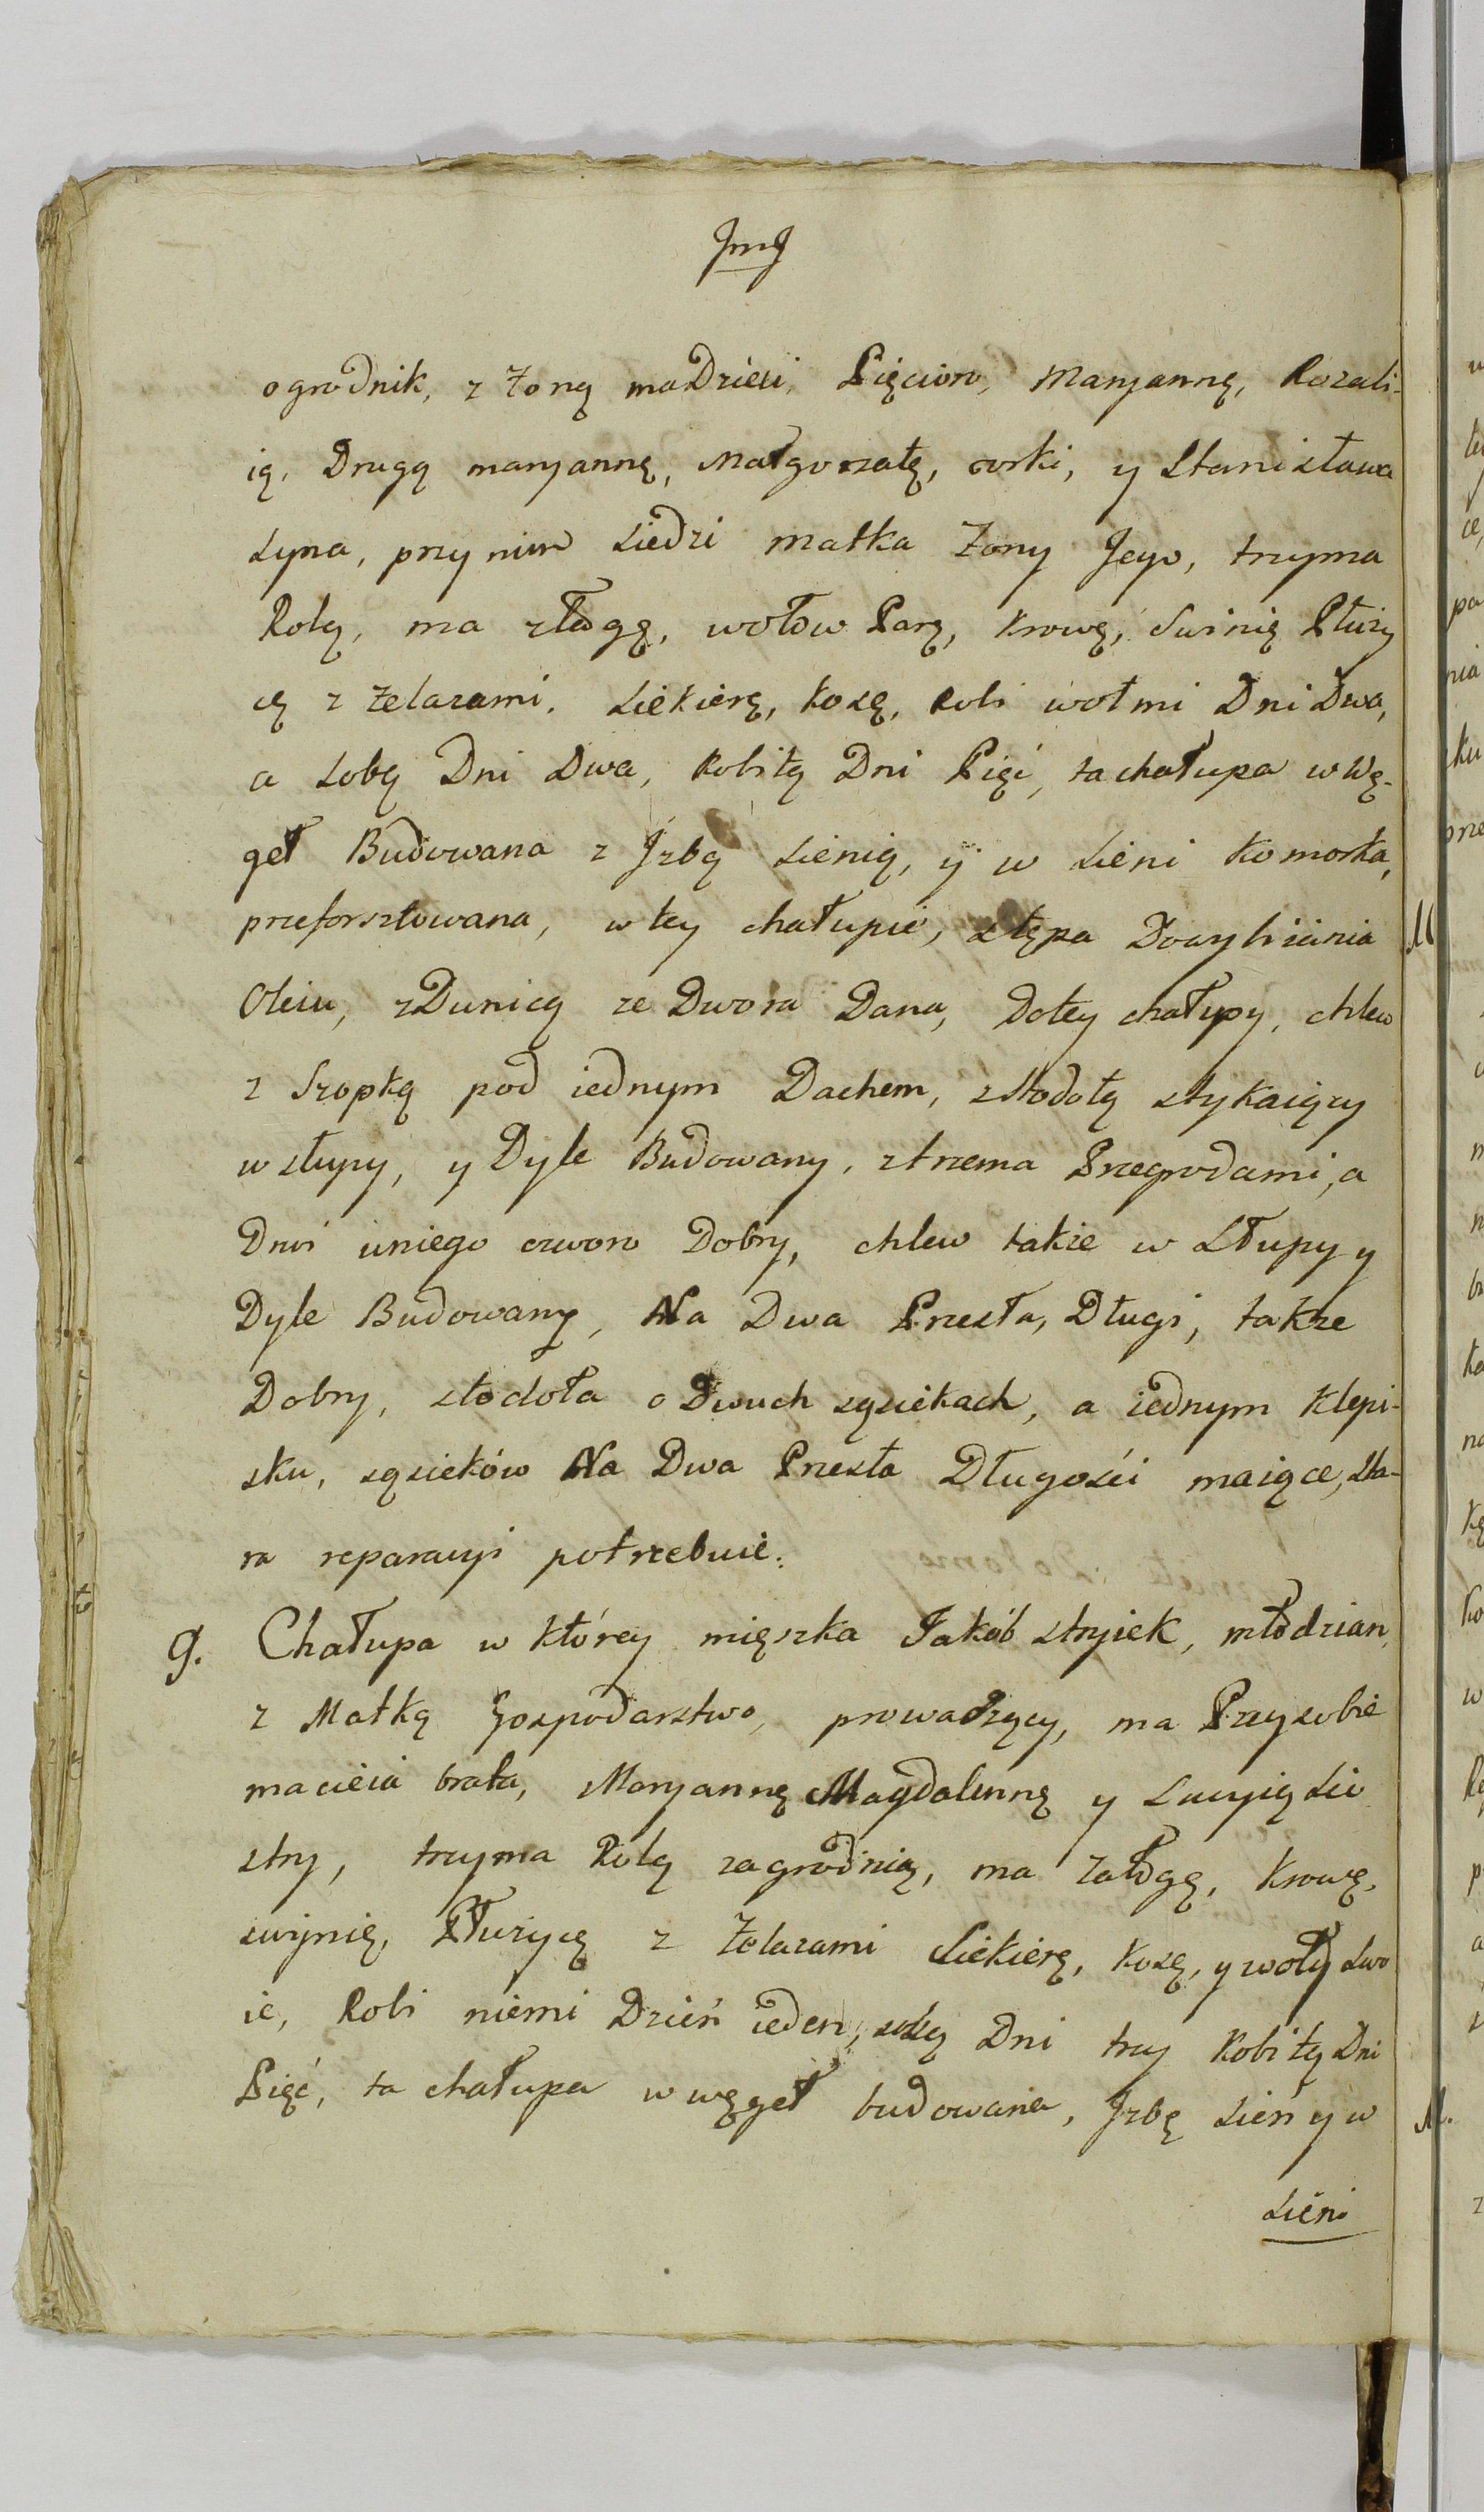 JmJ
ogrodnik, z żoną ma Dzieci, Pięcioro, Maryannę, Rozali-
ią, Drugą maryannę, Małgorzatę, corki, y Stanisława
Syna, przy nim Siedzi matka żony Jego, trzyma
Rolą, ma złogę, wołow Parę, krowę, Swinię Płuży
cę z żelazami, Siekierę, kosę, Robi wołmi Dni Dwa,
a Sobą Dni Dwa, kobitą Dni Pięć, ta chałupa w Wę-
geł Budowana z Jzbą Sienią, y w Sieni komorka,
przeforsztowana, w tey chałupie, stępa Do wybiiania
Oleiu, z Dunicą ze Dwora Dana, Do tey chałupy, chlew
z Szopką pod iednym Dachem, z stodołą stykaiący
w słupy, y Dyle Budowany, z trzema Przegrodami, a
Drwi u niego czworo Dobry, chlew także w Słupy y
Dyle Budowany, Na Dwa Przęsła, Długi, także
Dobry, stodoła o Dwuch sąsiekach, a iednym klepi-
sku, sąsieków Na Dwa Przesła Długości maiące, sta-
ra reparacyi potrzebuie.
9. Chałupa w którey mięszka Jakób stryiek, młodzian,
z Matką Gospodarstwo, prowadzący, ma Przy sobie
macieia brata, Maryannę Magdalennę y Lucyią Sio
stry, trzyma Rolą zagrodnią, ma załogę, krowę,
swynię, Płużycę z żelazami Siekierę, kosę, y woły Swo
ie, Robi niemi Dzień ieden, sobą Dni trzy kobitą Dni
Pięć, ta chałupa w węgeł budowana, Jzbę Sień y w
Sieni